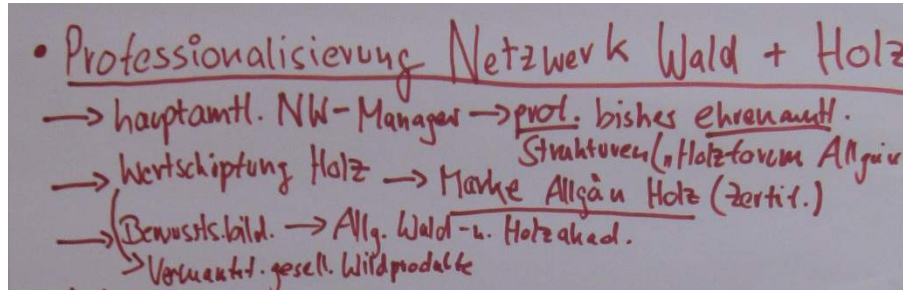 • Professionalisierung Netzwerk Wald + Holz
→ hauptamtl. NW-Manager → prof. bisher ehrenamtl.
Strukturen („Holzforum Allgäu
→ Wertschöpfung Holz → Marke Allgäu Holz (Zertif.)
→ Bewussts.bild. → Allg. Wald- u. Holzakad.
→ Vermarkt. gesell. Wildprodukte